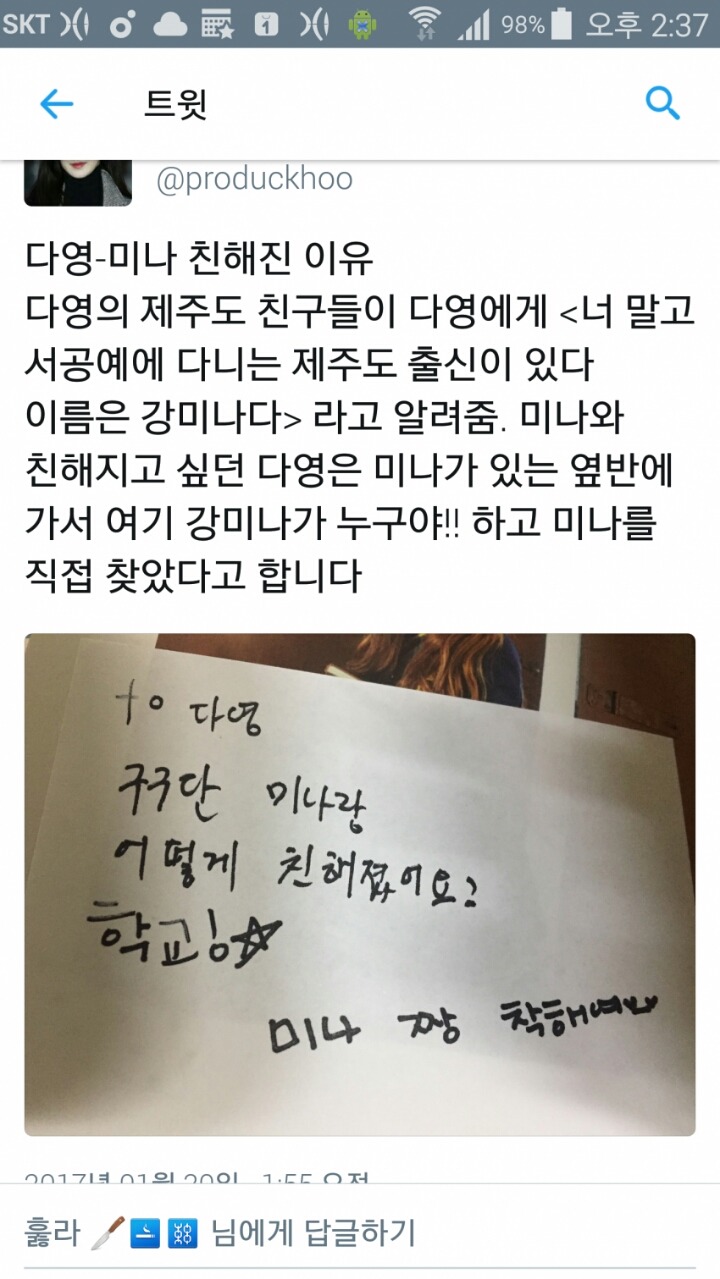 SKT 98% 오후 2:37
트윗
@produckhoo
다영-미나 친해진 이유
다영의 제주도 친구들이 다영에게 <너 말고
서공예에 다니는 제주도 출신이 있다
이름은 강미나다> 라고 알려줌. 미나와
친해지고 싶던 다영은 미나가 있는 옆반에
가서 여기 강미나가 누구야!! 하고 미나를
직접 찾았다고 합니다
to 다영
구구단 미나랑
어떻게 친해졌어요?
학교!☆
미나 짱 착해여
2017년 01월 20일, 1:55 오전
훓라 🔪🚬⛓ 님에게 답글하기